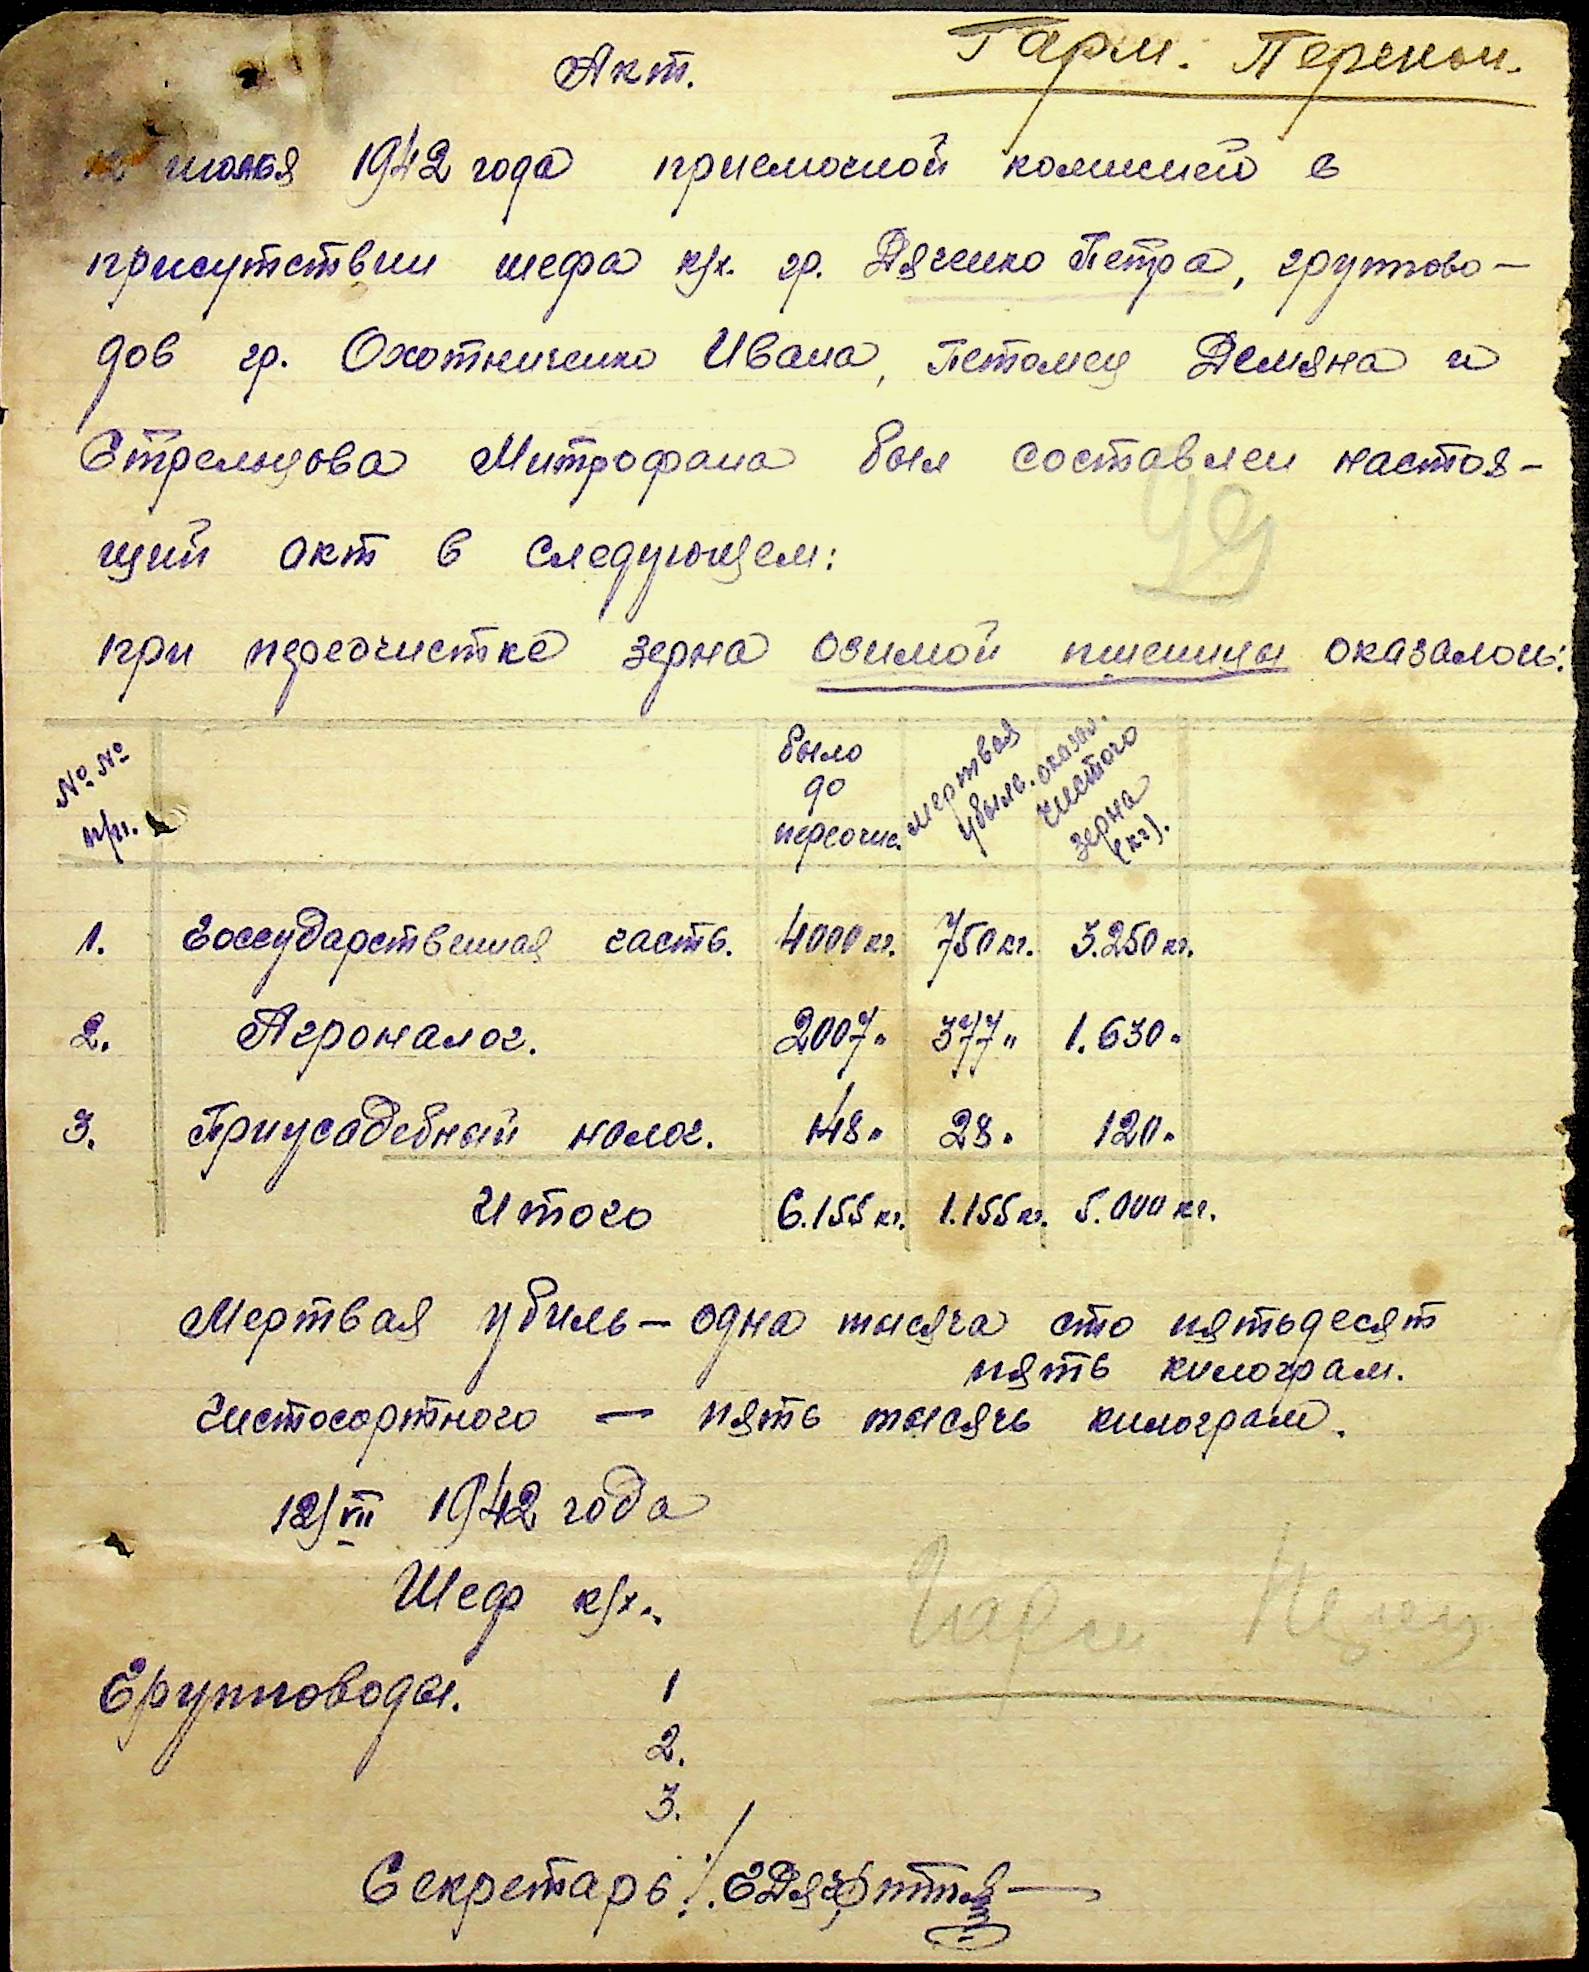 Акт.
Гарм.
июля 1942 года приемочной комисией в
присутствии шефа к/х. гр. Дяченко Петра, группово-
дов гр. Охотниченко Ивана, Петомец Демяна и
Стрельцова Митрофана был составлен настоя-
щий акт в следующем:
при переочистке зерна озимой пшеницы оказалось:
№ №
п/п.
было
до
переочис.
мертвая
убыль.
оказал.
чистого
зерна
(кг).
1. Госсударственная часть. 4000 кг. 750 кг. 3.250 кг.
2. Агроналог. 2007 " 377 " 1.630 "
3. Приусадебный налог. 148 " 28 " 120 "
Итого 6.155 кг. 1.155 кг. 5.000 кг.
Мертвая убиль – одна тысяча сто пятьдесят
пять килограм.
Чистосортного — пять тысячь килограм.
12/VII 1942 года
Шеф к/х.
Груповоды. 1
2.
3.
Секретарь